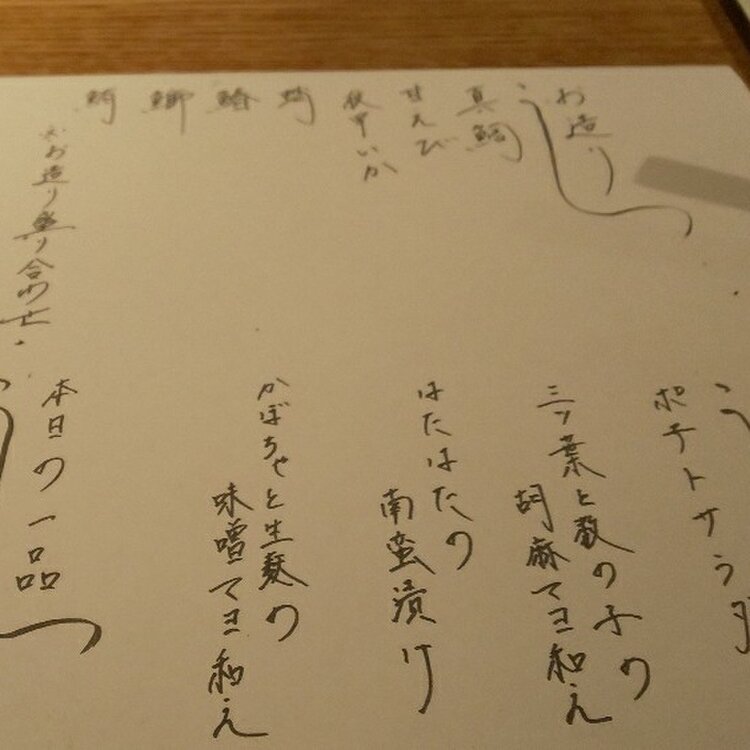 お造り
真鯛
甘えび
紋甲いか
お造り盛り合わせ
ポテトサラダ
三ツ葉と数の子の
胡麻マヨ和え
はたはたの
南蛮漬け
かぼちゃと生麩の
味噌マヨ和え
本日の一品